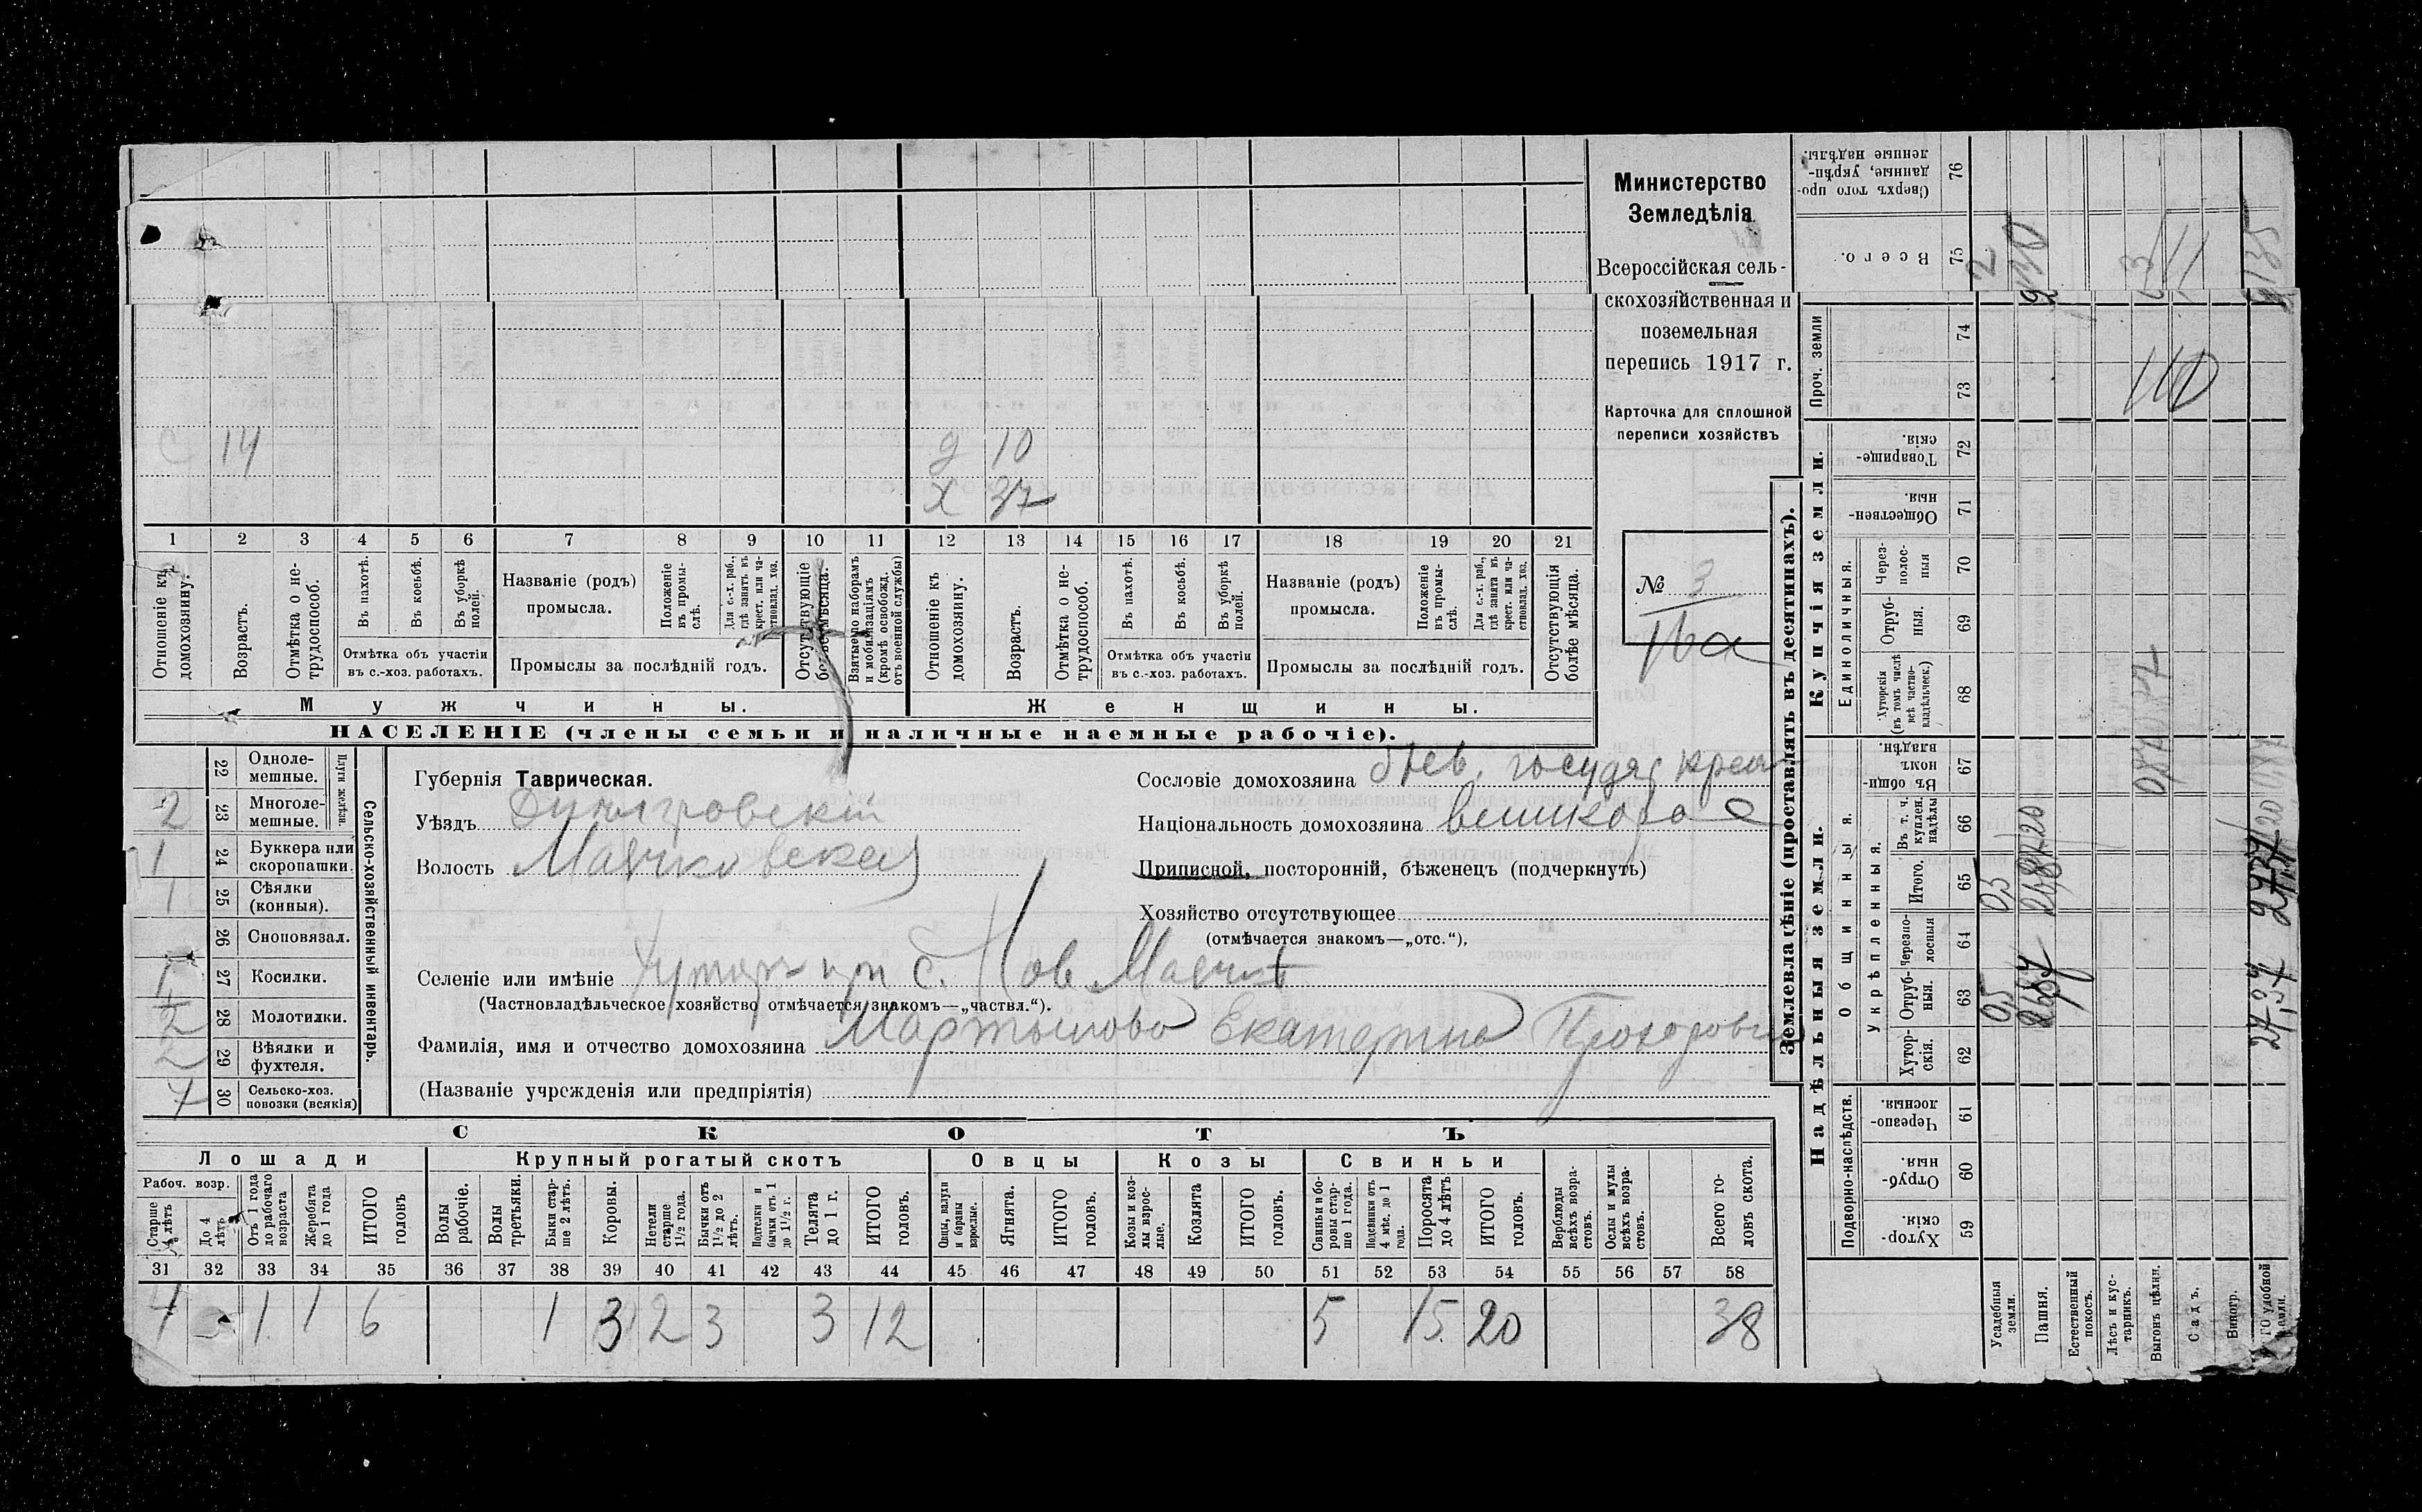 Министерство
Земледѣлія
Всероссійская сель-
скохозяйственная и
поземельная
перепись 1917 г.
Карточка для сплошной
переписи хозяйствъ
№ 3
С 14
д 10
Х 37
1 2 3 4 5 6 7 8 9 10 11 12 13 14 15 16 17 18 19 20 21
Отношеніе къ домохозяину.
Возрастъ.
Отмѣтка о не-трудоспособ.
Въ пахотѣ.
Въ косьбѣ.
Въ уборкѣ полей.
Отмѣтка объ участіи въ с.-хоз. работахъ.
Названіе (родъ) промысла.
Положеніе въ промы-слѣ.
Для с.-х. раб., гдѣ занятъ въ крест. или ча-стновлад. хоз.
Промыслы за послѣдній годъ.
Отсутствующіе
Взятые по наборамъ и мобилизаціямъ (кромѣ освобожд. отъ военной службы)
Отношеніе къ домохозяину.
Возрастъ.
Отмѣтка о не-трудоспособ.
Въ пахотѣ.
Въ косьбѣ.
Въ уборкѣ полей.
Отмѣтка объ участіи въ с.-хоз. работахъ.
Названіе (родъ) промысла.
Положеніе въ промы-слѣ.
Для с.-х. раб., гдѣ занята въ крест. или ча-стновлад. хоз.
Промыслы за послѣдній годъ.
Отсутствующія болѣе мѣсяца.
Мужчины.
Женщины.
НАСЕЛЕНІЕ (члены семьи и наличные наемные рабочіе).
Сельско-хозяйственный инвентарь.
Плуги желѣзн.
22 Одноле-мешные.
2 23 Многоле-мешные.
1 24 Буккера или скоропашки.
1 25 Сѣялки (конныя).
26 Сноповязал.
1 27 Косилки.
28 Молотилки.
2 29 Вѣялки и фухтеля.
7 30 Сельско-хоз. повозки (всякія)
Губернія Таврическая.
Уѣздъ Днѣпровскій
Волость Маячковская
Селеніе или имѣніе Хуторъ при с. Нов Маячкѣ
(Частновладѣльческое хозяйство отмѣчается знакомъ—„частвл.“).
Фамилія, имя и отчество домохозяина Мартынова Екатерина Прохоровна
(Названіе учрежденія или предпріятія)
Сословіе домохозяина бывш. государ крест
Національность домохозяина великорос
Приписной, посторонній, бѣженецъ (подчеркнуть)
Хозяйство отсутствующее
(отмѣчается знакомъ—„отс.“),
СКОТЪ
Лошади Крупный рогатый скотъ Овцы Козы Свиньи
Рабоч. возр.
Старше 4 лѣтъ
До 4 лѣтъ
Отъ 1 года до рабочаго возраста
Жеребята до 1 года
ИТОГО головъ
Волы рабочіе.
Волы третьяки.
Быки стар-ше 2 лѣтъ.
Коровы.
Нетели старше 1½ года.
Бычки отъ 1½ до 2 лѣтъ.
Подтелки и бычки отъ 1 до 1½ г.
Телята до 1 г.
ИТОГО головъ.
Овцы, валухи и бараны взрослые.
Ягнята.
ИТОГО головъ.
Козы и коз-лы взрос-лые.
Козлята
ИТОГО головъ.
Свиньи и бо-ровы стар-ше 1 года.
Подсвинки отъ 4 мѣс. до 1 года.
Поросята до 4 лѣтъ
ИТОГО головъ.
Верблюды всѣхъ возра-стовъ.
Ослы и мулы всѣхъ возра-стовъ.
Всего го-ловъ скота.
31 32 33 34 35 36 37 38 39 40 41 42 43 44 45 46 47 48 49 50 51 52 53 54 55 56 57 58
4 1 1 6 1 3 2 3 3 12 5 15 20 38
Землевладѣніе (проставлять въ десятинахъ).
Надѣльныя земли.
Купчія земли.
Проч. земли
Подворно-наслѣдств.
Общинныя.
Укрѣпленныя.
Единоличныя.
Хутор-скія. 59
Отруб-ныя. 60
Черезпо-лосныя. 61
Хутор-скія. 62
Отруб-ныя. 63
Черезпо-лосныя 64
Итого. 65
Въ т. ч. куплен. надѣлы 66
Въ общи-номъ владѣн. 67
Хуторскія (въ томъ числѣ всѣ частно-владѣльческ.) 68
Отруб-ныя. 69
Через-полос-ныя 70
Обществен-ныя. 71
Товарище-скія. 72
73
74
Всего. 75
Сверхъ того про-данные, укрѣп-ленные надѣлы. 76
Усадебныя земли. 0,5 0,5
Пашня.
Естественный покосъ.
Лѣсъ и кус-тарникъ.
Выгонъ цѣлин.
Садъ.
Виногр.